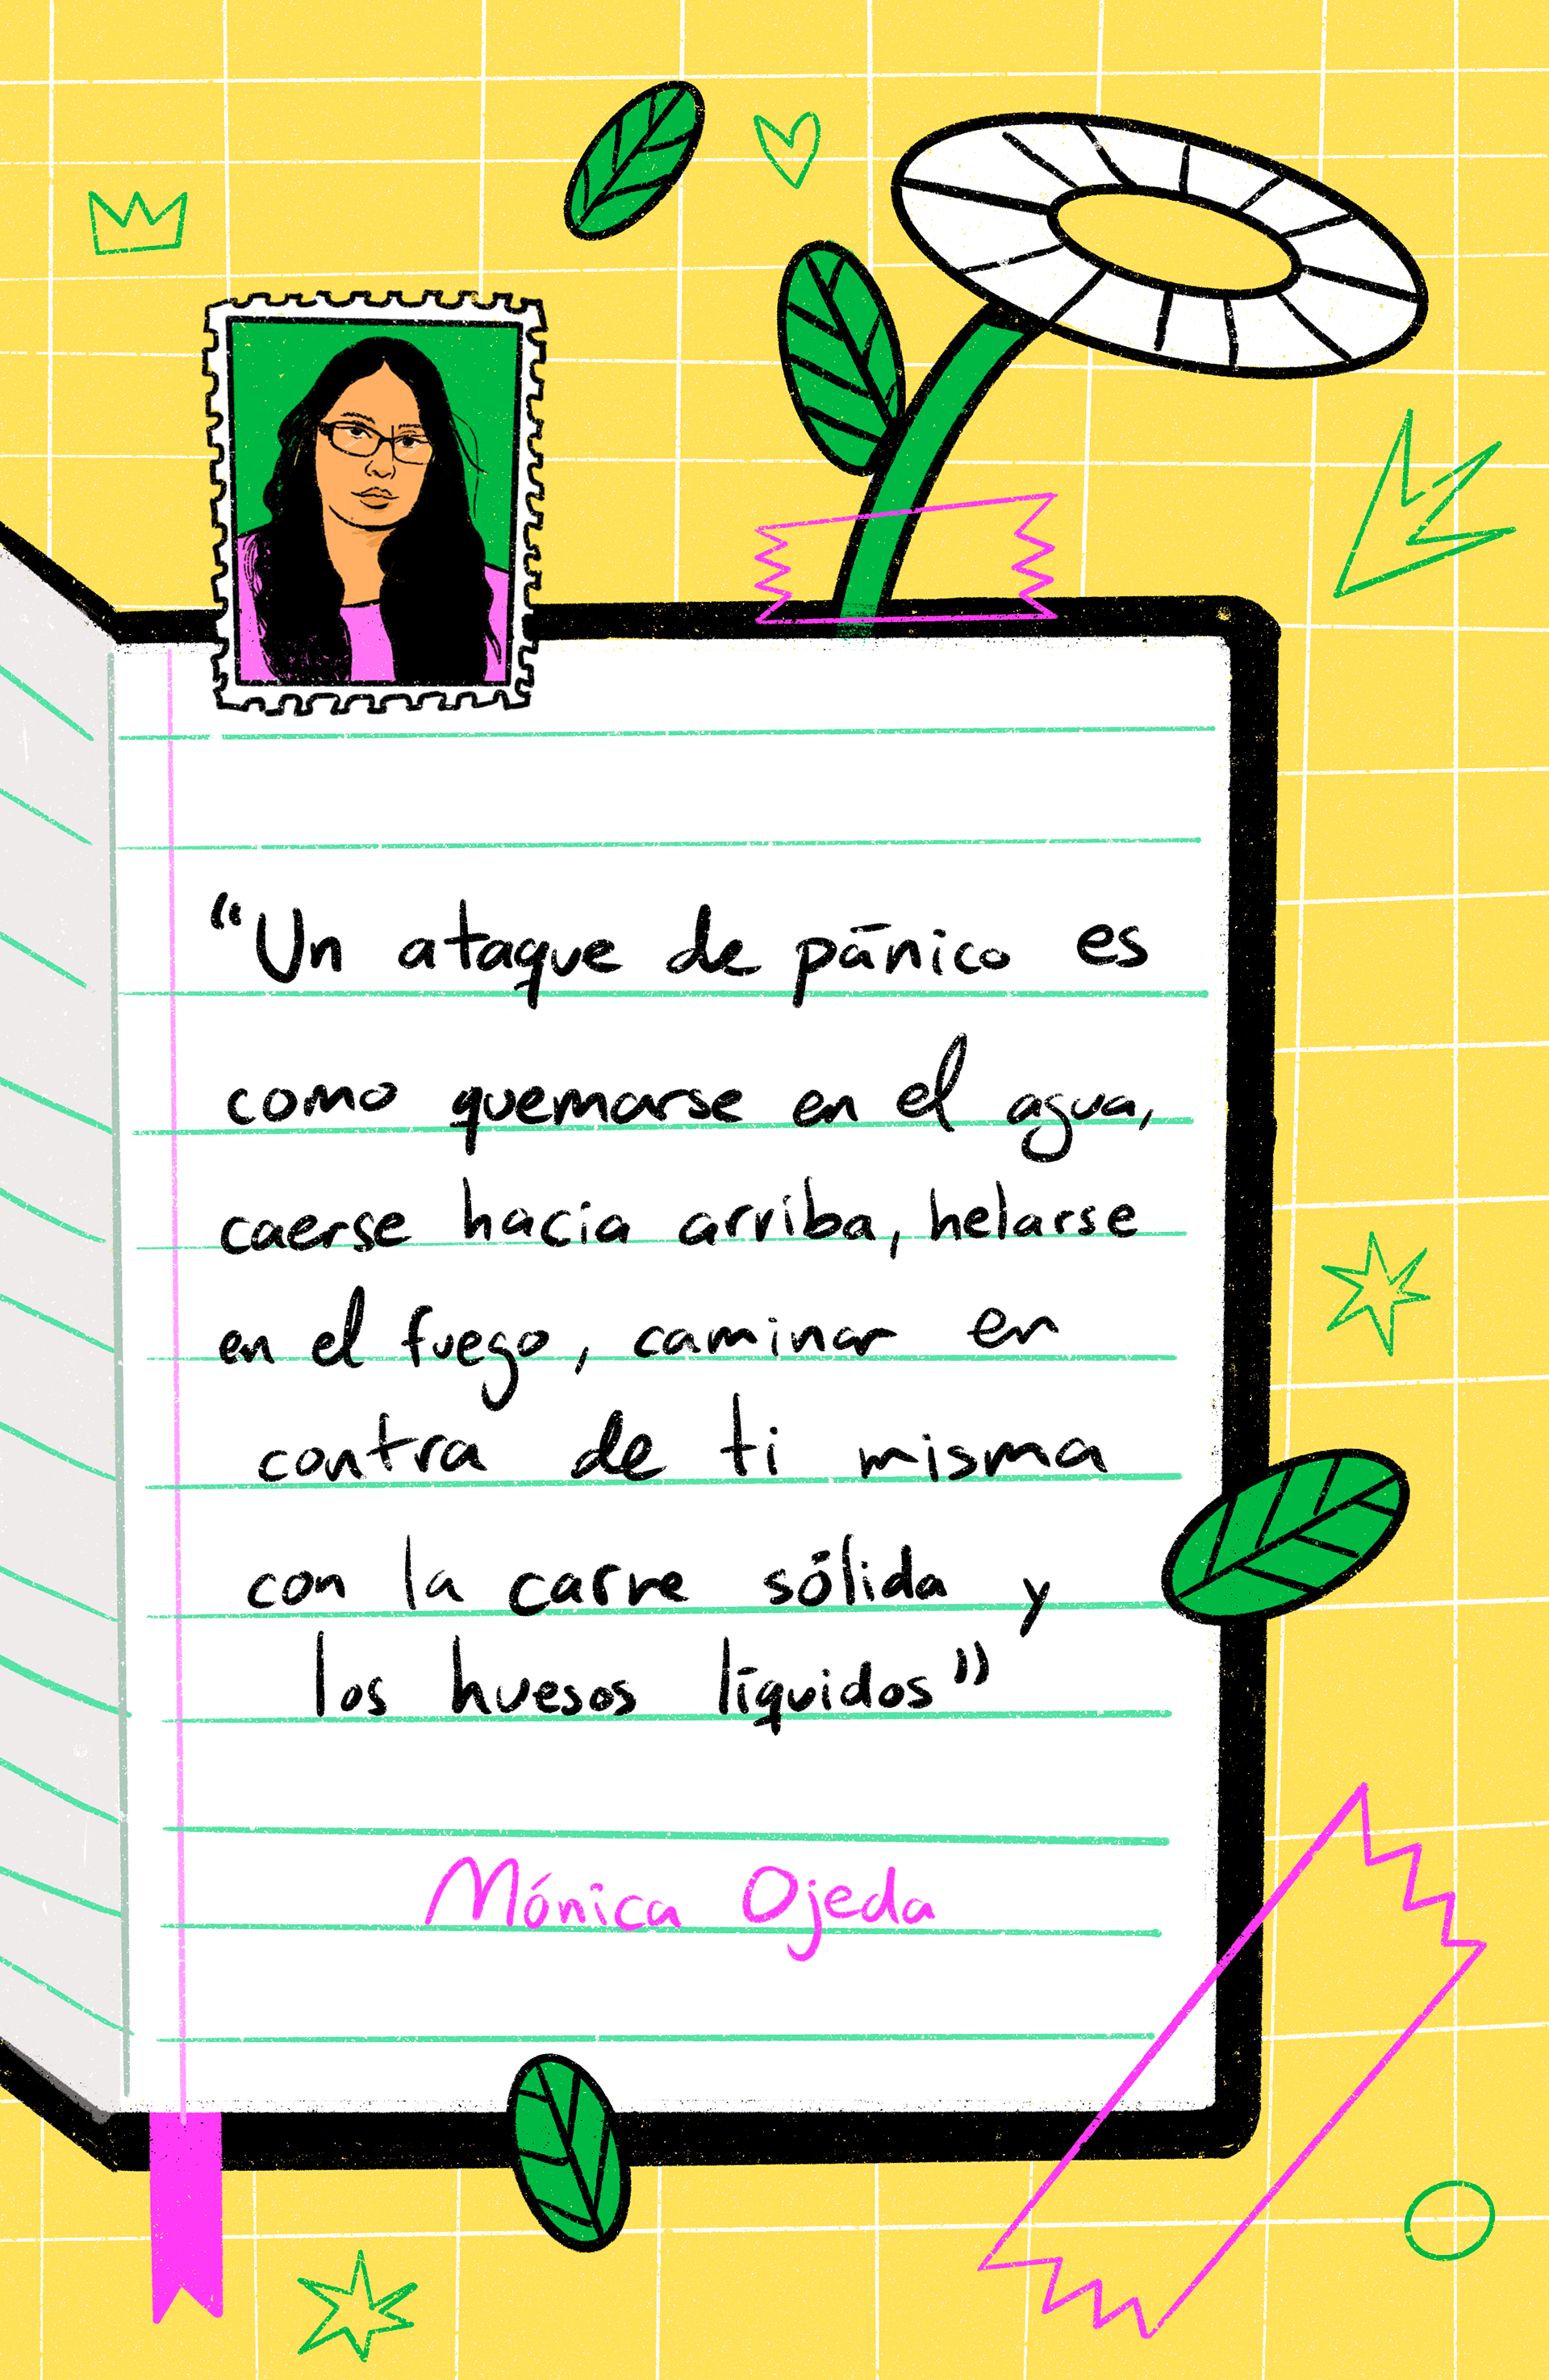 “Un ataque de pánico es
como quemarse en el agua,
caerse hacia arriba, helarse
en el fuego, caminar en
contra de ti misma
con la carne sólida y
los huesos líquidos”
Mónica Ojeda